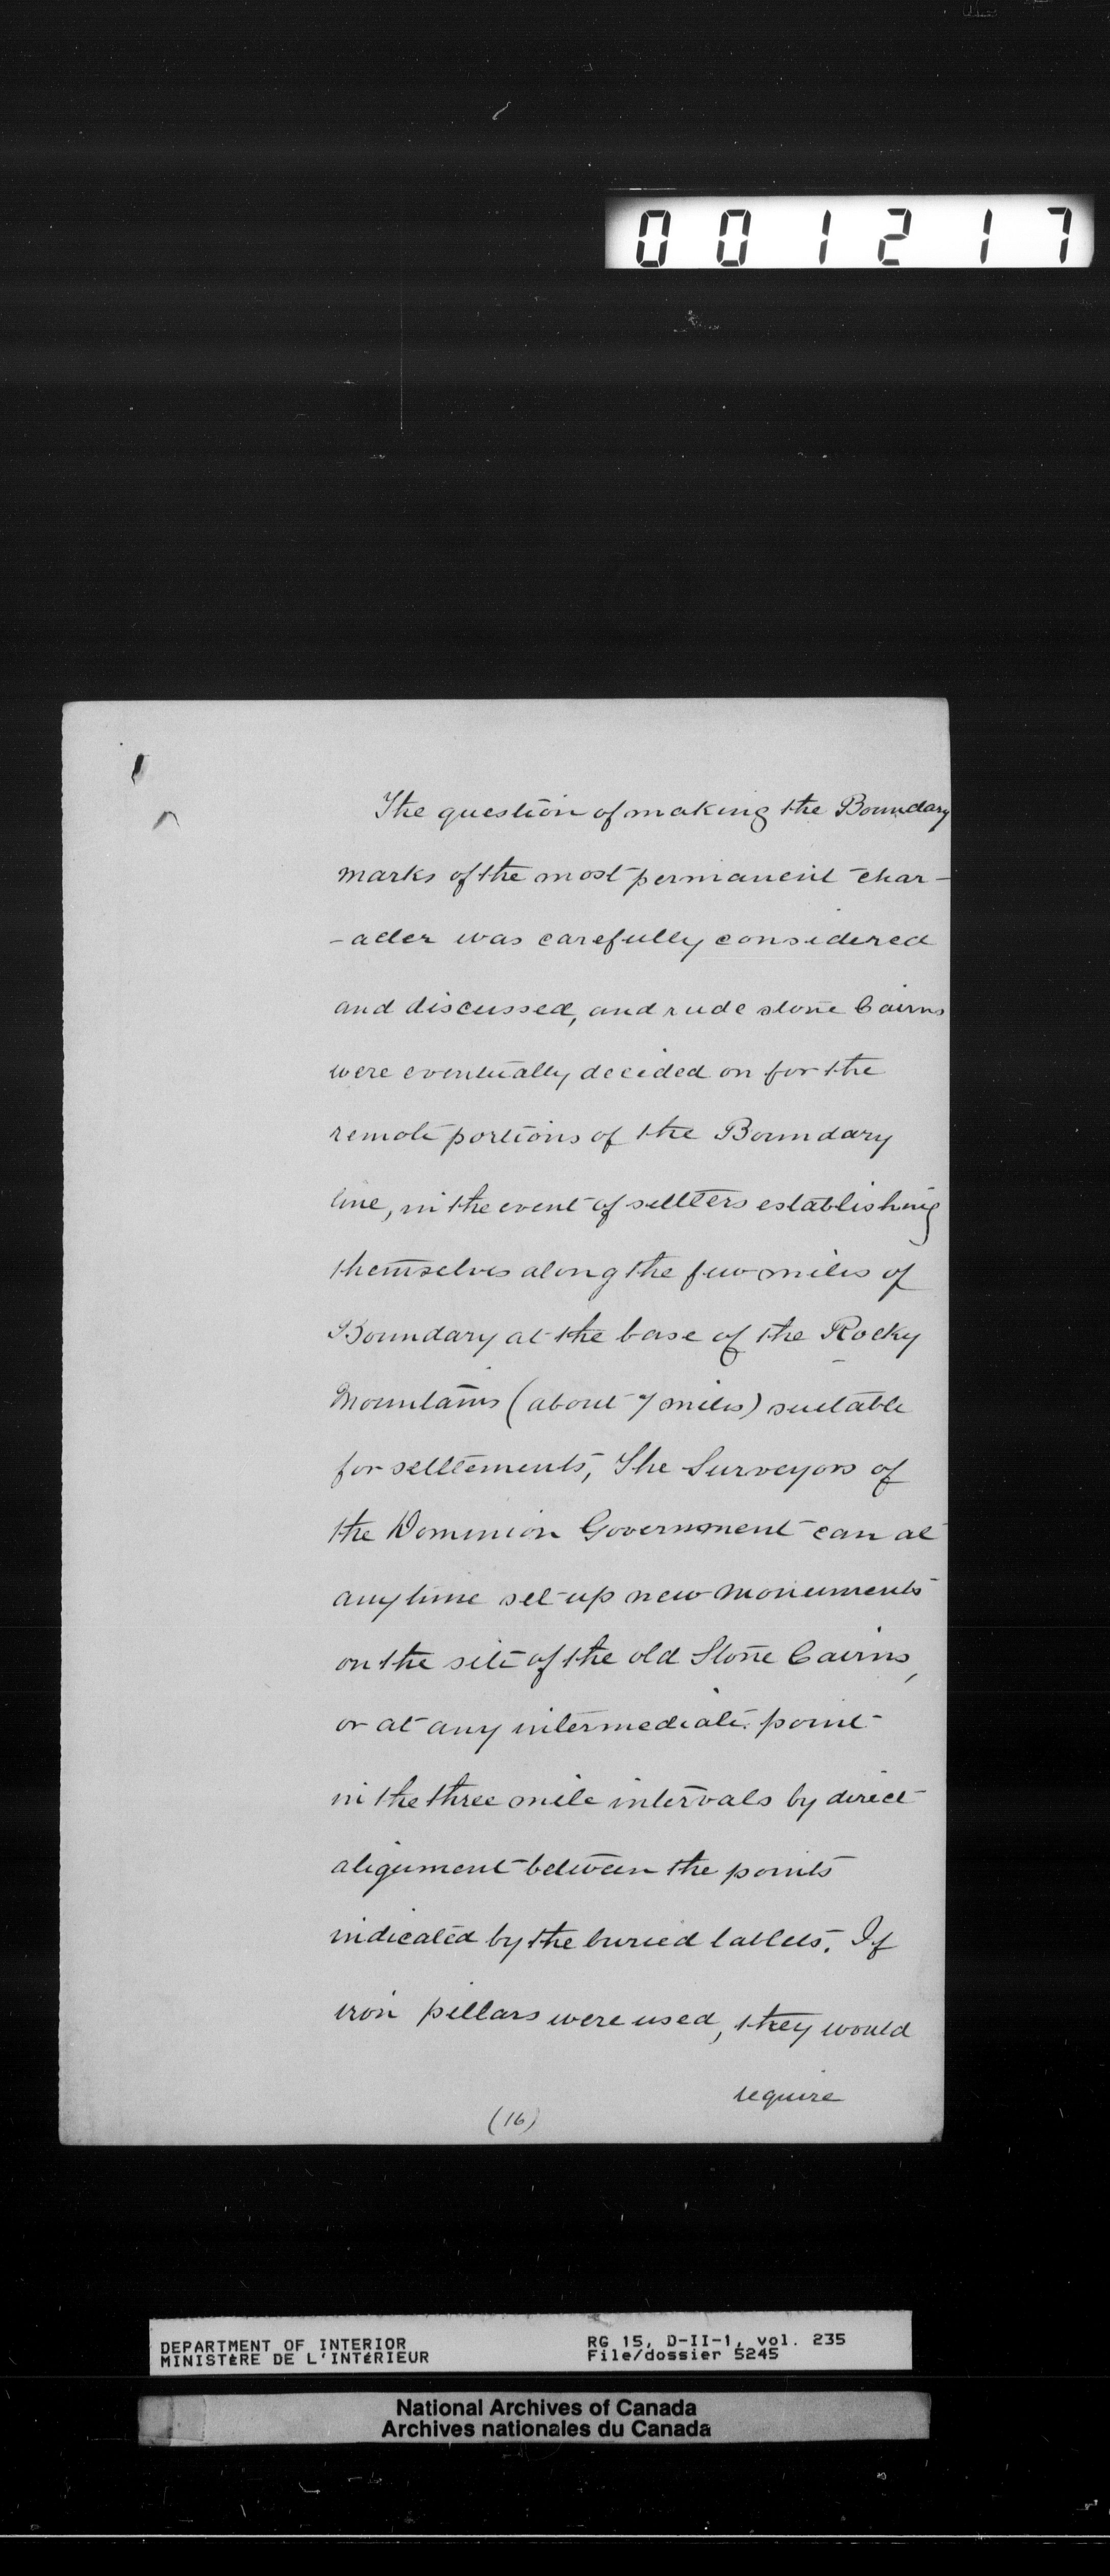 001217
The question of making the Boundary
marks of the most permanent char-
-acter was carefully considered
and discussed, and rude stone Cairns
were eventually decided on for the
remote portions of the Boundary
line, in the event of settlers establishing
themselves along the few miles of
Boundary at the base of the Rocky
Mountains (about 7 miles) suitable
for settlements, The Surveyors of
the Dominion Government can at
any time set up new monuments
on the site of the old Stone Cairns,
or at any intermediate point
in the three mile intervals by direct
alignment between the points
indicated by the buried tablets. If
iron pillars were used, they would
require
(16)
DEPARTMENT OF INTERIOR
MINISTÈRE DE L'INTÉRIEUR
RG 15, D-II-1, vol. 235
File/dossier 5245
National Archives of Canada
Archives nationales du Canada